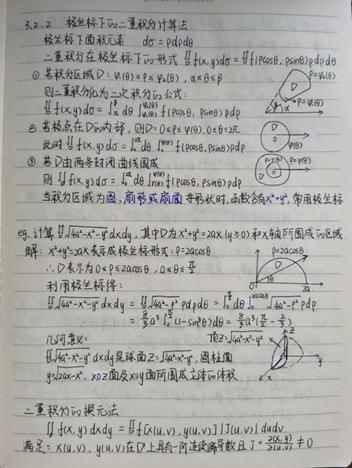 3.2.2 极坐标下的二重积分计算法
极坐标下面积元素 dσ=ρdρdθ
二重积分在极坐标下的形式 ∬f(x,y)dσ=∬f(ρcosθ,ρsinθ)ρdρdθ
① 若积分区域D: φ₁(θ)≤ρ≤φ₂(θ), α≤θ≤β
则二重积分化为二次积分的公式:
∬f(x,y)dσ=∫_α^β dθ∫_{φ₁(θ)}^{φ₂(θ)} f(ρcosθ,ρsinθ)ρdρ
② 若极点在D的内部, 则D: 0≤ρ≤φ(θ), 0≤θ≤2π
此时∬f(x,y)dσ=∫_0^{2π}dθ∫_0^{φ(θ)} f(ρcosθ,ρsinθ)ρdρ
③ 若D由两条封闭曲线围成
则∬f(x,y)dσ=∫_0^{2π}dθ∫_{φ₁(θ)}^{φ₂(θ)} f(ρcosθ,ρsinθ)ρdρ
当积分区域为圆、扇形或扇面等形状时, 函数含有x²+y², 常用极坐标
eg. 计算∬√(4a²-x²-y²)dxdy, 其中D为x²+y²=2ax(y≥0)和x轴所围成的区域.
解: x²+y²=2ax表示成极坐标形式: ρ=2acosθ
∴D表示为0≤ρ≤2acosθ, 0≤θ≤π/2
利用极坐标得:
∬√(4a²-x²-y²)dxdy=∬√(4a²-ρ²)ρdρdθ=∫_0^{π/2}dθ∫_0^{2acosθ}√(4a²-ρ²)ρdρ
=8/3a³∫_0^{π/2}(1-sin³θ)dθ=8/3a³(π/2-2/3)
几何意义: 顶z=√(4a²-x²-y²)
∬√(4a²-x²-y²)dxdy是球面z=√(4a²-x²-y²), 圆柱面
y=√(2ax-x²), xoz面及xoy面所围成立体的体积
二重积分的换元法
∬f(x,y)dxdy=∬f[x(u,v),y(u,v)]|J(u,v)|dudv
满足: x(u,v), y(u,v)在D'上具有一阶连续偏导数且J=∂(x,y)/∂(u,v)≠0